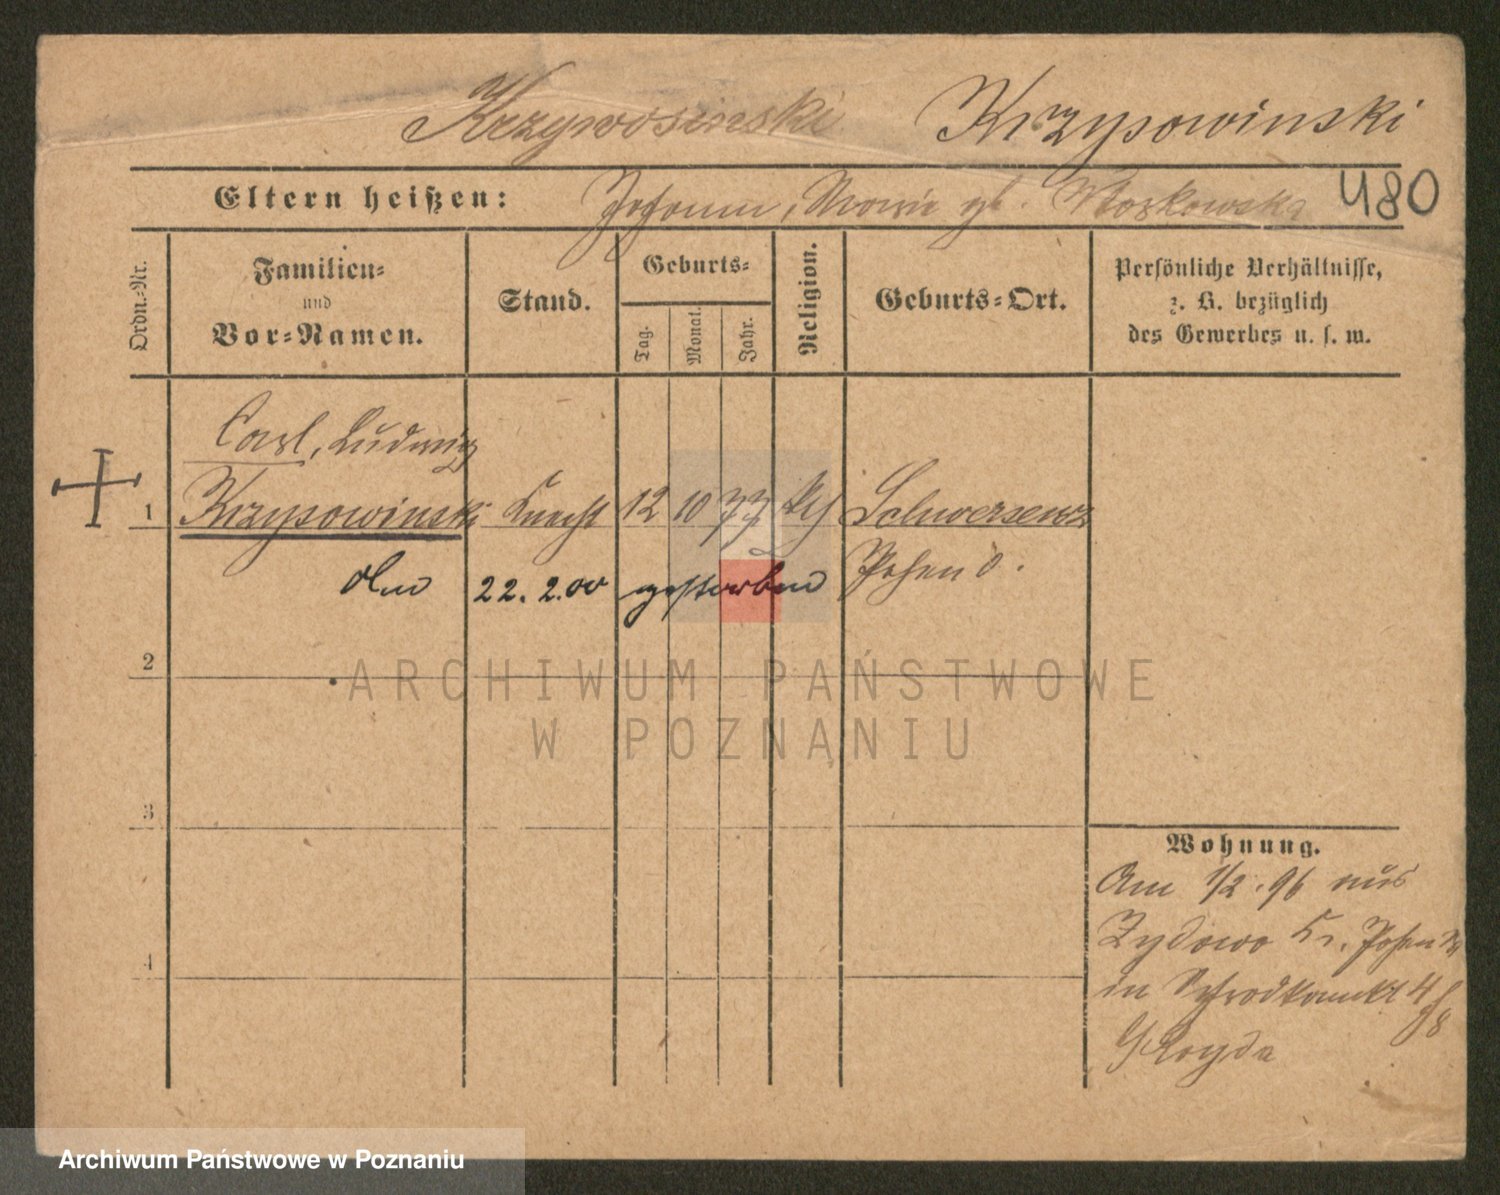 Krzywosinski Krzysowinski
Eltern heißen: Johann, Marie gb. Moskowska 480
Ordn.-Nr.
Familien-
und
Vor-Namen.
Stand.
Geburts-
Tag.
Monat.
Jahr.
Religion.
Geburts-Ort.
Persönliche Verhältnisse,
z. B. bezüglich
des Gewerbes u. s. w.
Carl, Ludwig
1 Krzysowinski Knecht 12 10 77 kth Schwersenz
Posen O.
22.2.00 gestorben
2
3
4
Wohnung.
Am 1/2.96 aus
Zydowo Kr. Posen W
in Schrodkamkt 4
8
ARCHIWUM PAŃSTWOWE
W POZNANIU
Archiwum Państwowe w Poznaniu